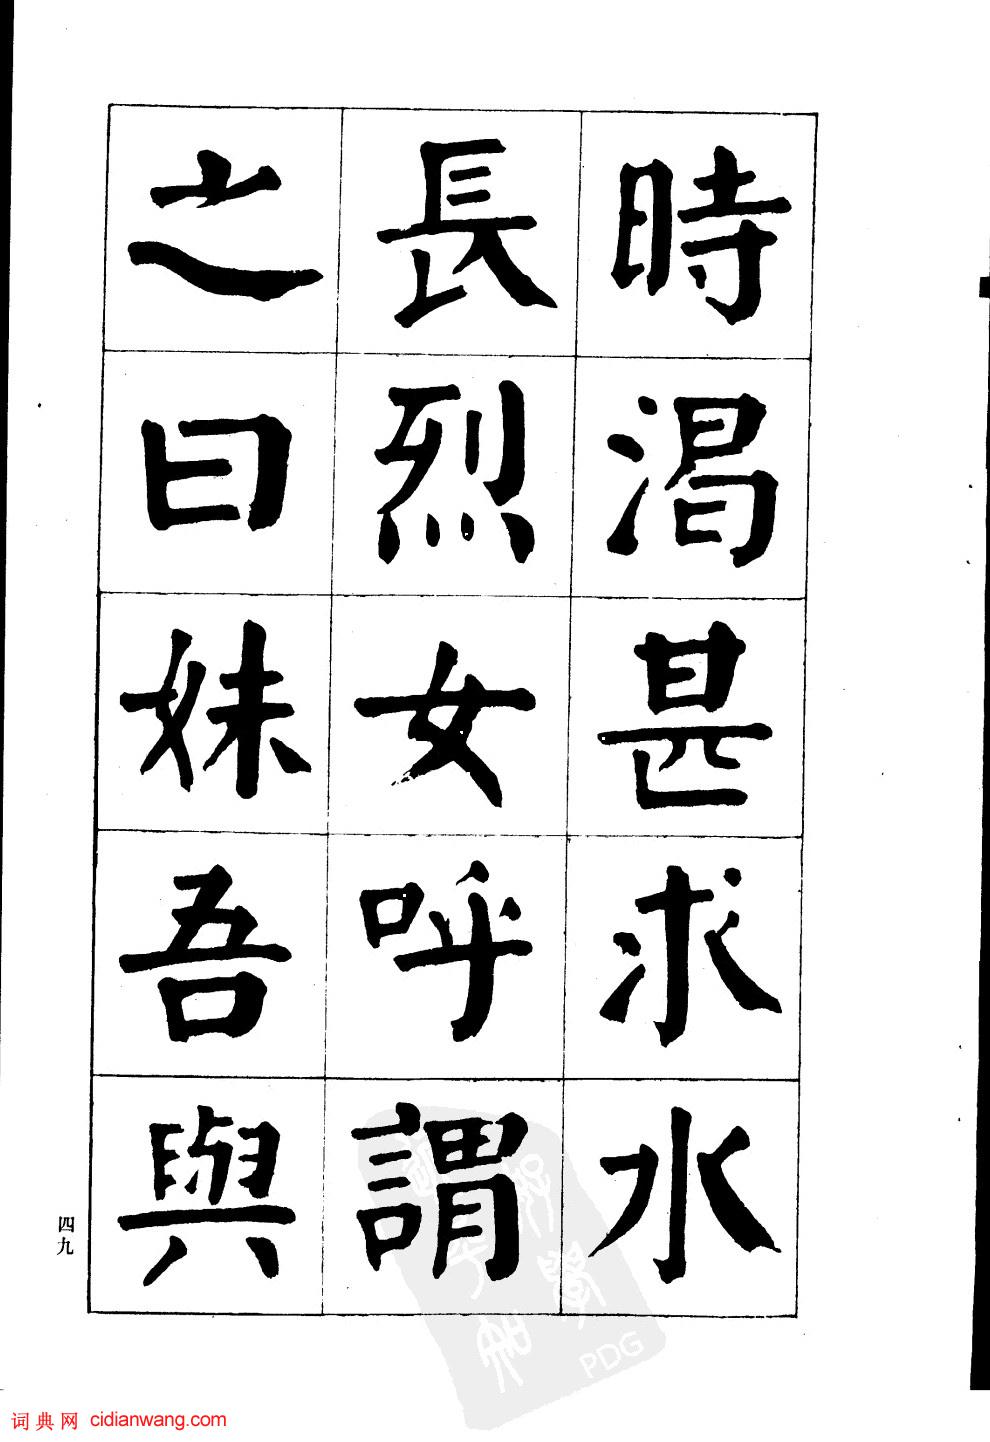 時渴甚求水
長烈女呼謂
之曰妹吾與
四九
PDG
词典网 cidianwang.com